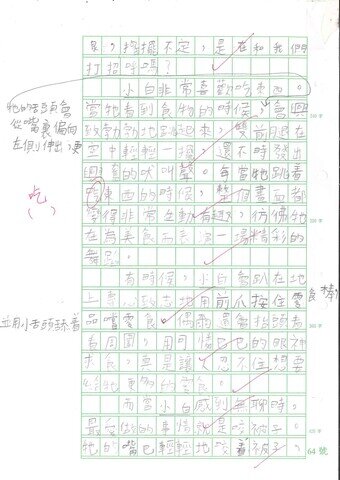 晃,搖擺不定,是在和我們
打招呼嗎?
小白非常喜歡吃東西。
當牠看到食物的時候,會興
致勃勃地跳起來,雙前腿在
空中輕輕一揮,還不時發出
興奮的吠叫聲。每當牠跳著
吃東西的時候,整個畫面都
變得非常生動有趣,彷彿牠
在為美食而表演一場精彩的
舞蹈。
有時候,小白會趴在地
上,專心致志地用前爪按住零食
品嚐零食,偶爾還會抬頭看
看周圍,用可憐巴巴的眼神
求食,真是讓人忍不住想要
給牠更多的零食。
而當小白感到無聊時,
最喜做的事情就是咬被子。
牠的嘴巴輕輕地咬著被子,
牠的舌頭會
從嘴裏偏向
左側伸出,更
吃
( )
並用小舌頭舔著
64 號